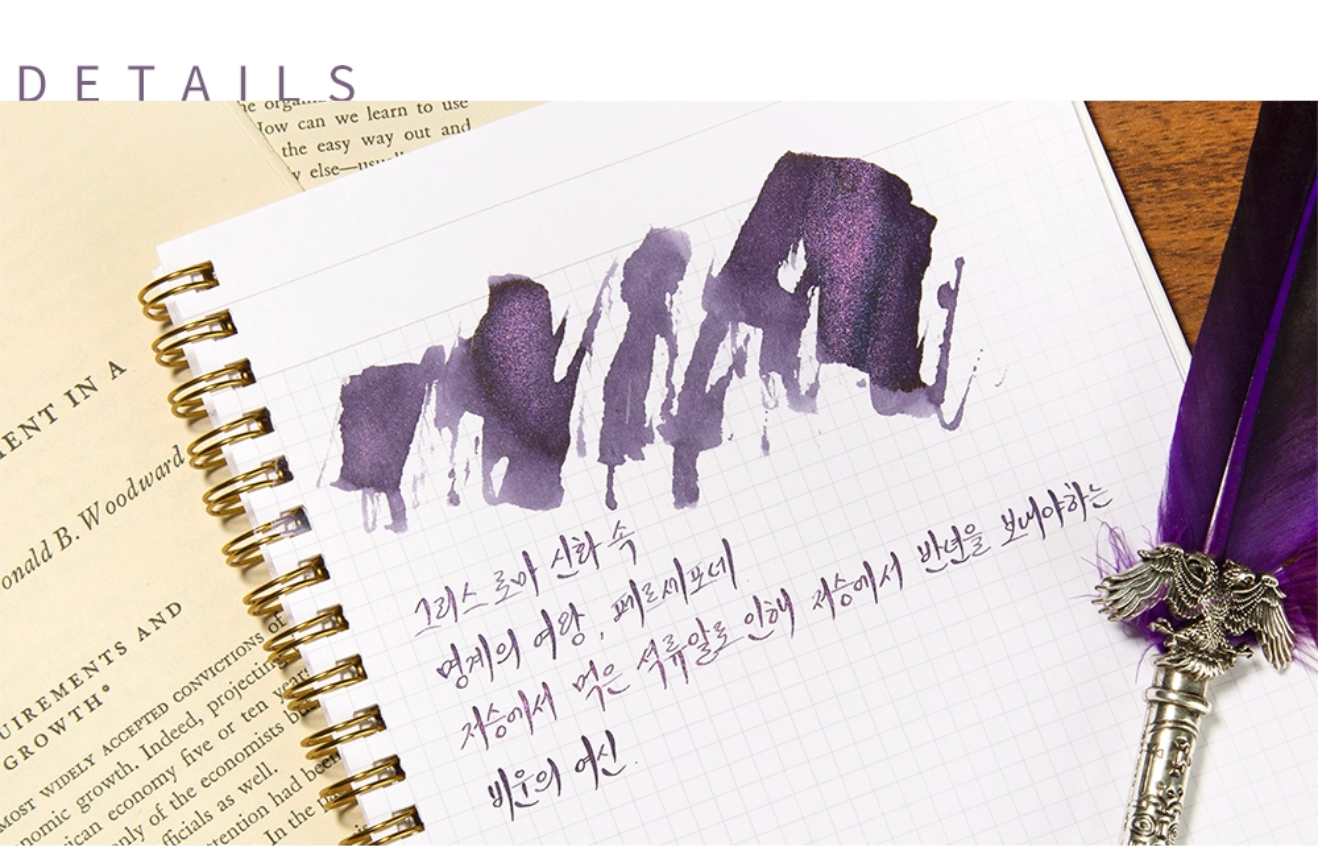 DETAILS
he orga
How can we learn to use
the easy way out and
y else—usu
MENT IN A
onald B. Woodward
UIREMENTS AND
GROWTH*
MOST WIDELY ACCEPTED CONVICTIONS of
nomic growth. Indeed, projecting
ican economy five or ten year
only of the economists bu
fficials as well.
tention had been
In the
그리스 로마 신화 속
명계의 여왕, 페르세포네.
저승에서 먹은 석류알로 인해 저승에서 반년을 보내야하는
비운의 여신.